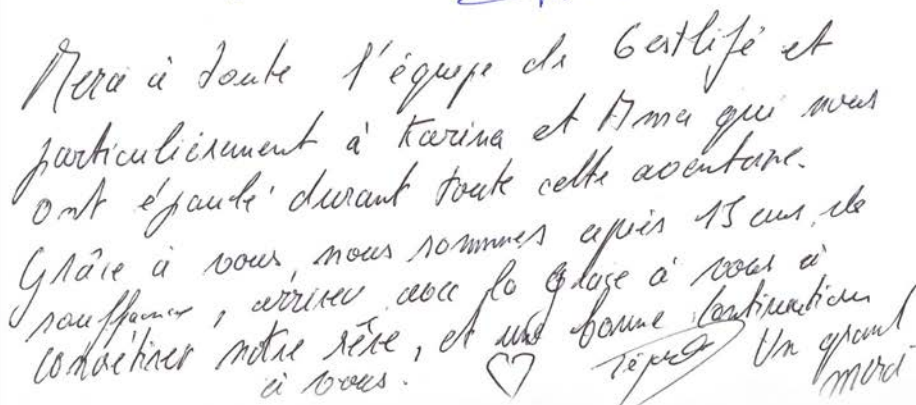 Merci à toute l'équipe de Gestlifé et
particulièrement à Karina et Anna qui nous
ont épaulé durant toute cette aventure.
Grâce à vous, nous sommes après 13 ans de
souffrance, arriver avec la Grâce à vous à
concrétiser notre rêve, et une bonne continuation
à vous. ♡ Un grand
merci.